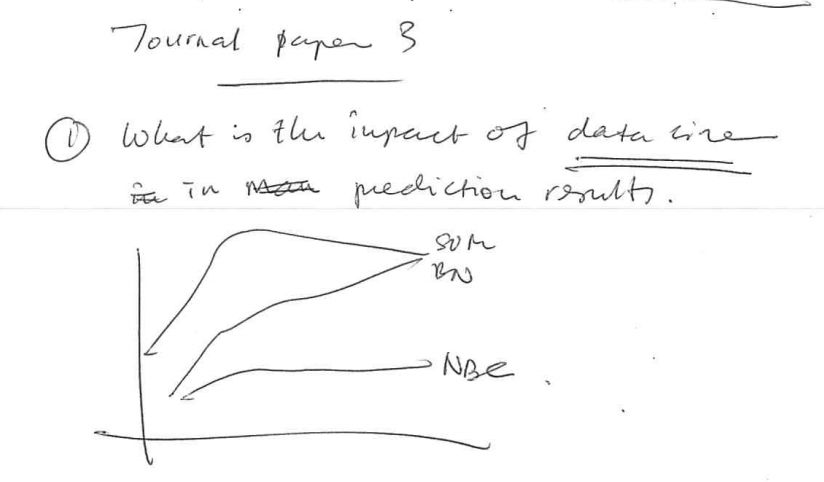 Journal paper 3
① What is the impact of data size
in prediction results.
SVM
BN
NBC